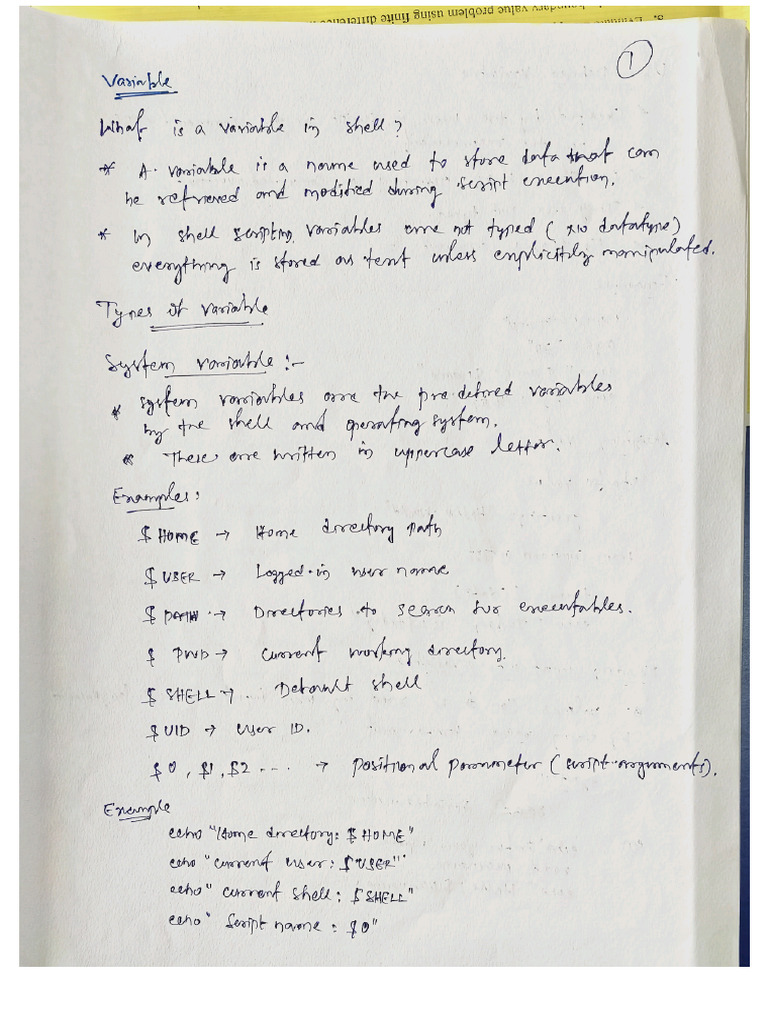 8. Evaluate boundary value problem using finite difference
1
Variable
What is a variable in shell?
* A variable is a name used to store data that can
be retrieved and modified during script execution.
* In shell scripting variables are not typed (no datatype)
everything is stored as text unless explicitly manipulated.
Types of variable
System variable :-
* System variables are the pre-defined variables
by the shell and operating system.
* These are written in uppercase letter.
Examples:
$HOME → Home directory path
$USER → Logged-in user name
$PATH → Directories to search for executables.
$ PWD → Current working directory.
$SHELL → Default shell
$UID → User ID.
$0, $1, $2 ... → Positional parameter (script arguments).
Example
echo "Home directory: $HOME"
echo "current user: $USER"
echo "current shell: $SHELL"
echo "Script name: $0"